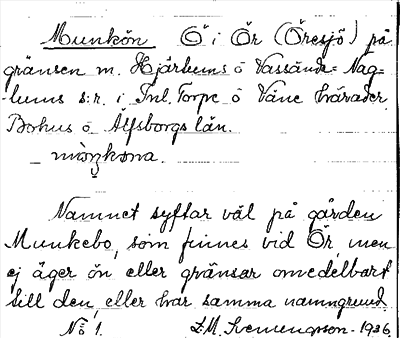 Munkön Ö i Ör (Öresjö) på
gränsen m. Hjärtums o Vassända-Nag-
-lums s:r. i Inl. Torpe o Väne härader.
Bohus o. Älfsborgs län.
– mùṇkөna.
Namnet syftar väl på gården
Munkebo, som finnes vid Ör, men
ej äger ön eller gränsar omedelbart
till den, eller har samma namngrund.
No 1. 1936.